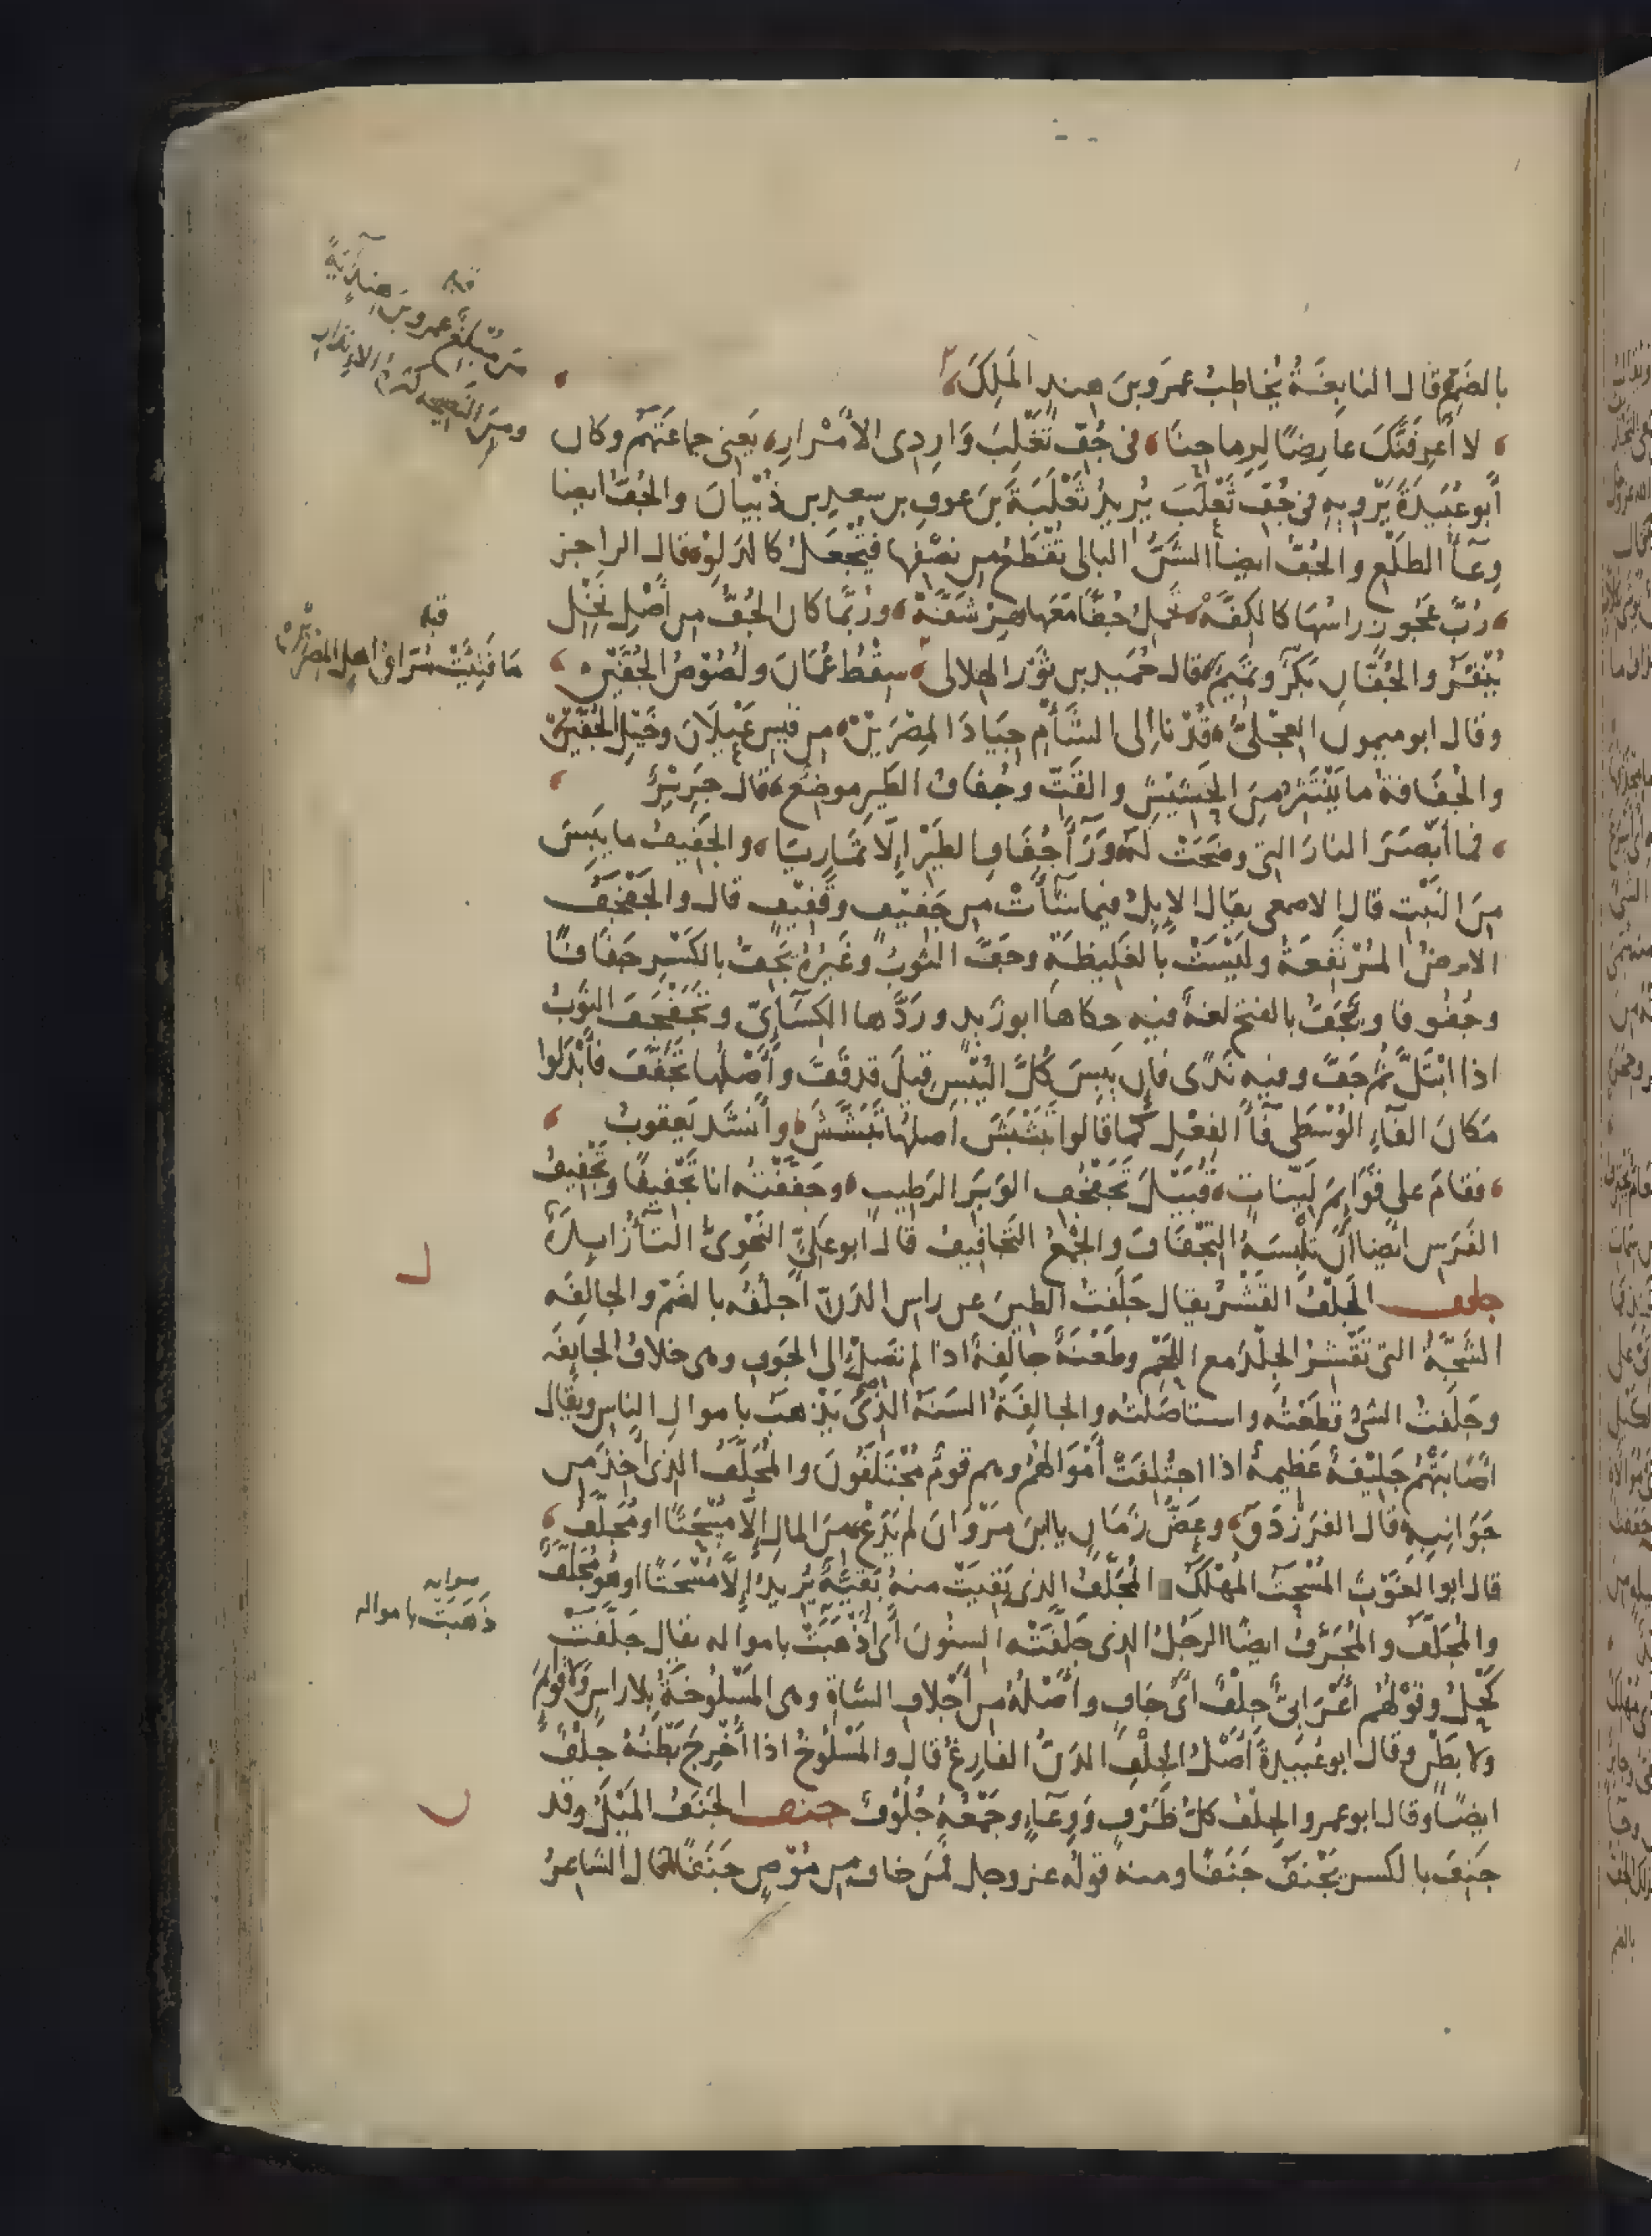 بالضَمِّ قال النابِغَةُ يُخاطِبُ عمرَو بنَ هِندٍ المَلِكَ
لا أعرِفَنَّكَ عارِضًا لِرِماحِنَا في جُفِّ تَغْلِبَ وَارِدِى الأمْرارِ يَعنِى جماعَتَهُم وكان
أبو عُبَيدَةَ يَرْوِيهِ في جُفِّ ثَعْلَبَ يُرِيدُ ثَعْلَبَةَ بنَ عوف بن سعدِ بن ذُبْيَانَ والجُفُّ ايضا
وِعَآءُ الطَلْعِ والجُفُّ ايضا الشَنُّ البالى تُقْطَعُ من نصْفِها فيُجْعَلُ كالدَلْوِ قال الراجز
رُبَّ عَجُوزٍ راسُهَا كالكِفَّهْ تحْمِلُ جُفًّا مَعَها هِرْشَفَّهْ ورُبَّما كان الجُفُّ من أصْلِ نَخْلٍ
يُنْقَرُ والجُفَّانِ بَكْرٌ وتَمِيمٌ قال حُمَيدُ بن ثَوْر الهِلالى سِقْطُ عُمَانَ ولُصُوصُ الجُفَّيْنِ
وقال ابو ميمون العِجْلىُّ قُدْنَا إلى الشَأمِ جِيَادَ المِصْرَيْنْ من قَيسِ عَيْلَانَ وخَيْلِ الجُفَّيْنْ
والجُفَافَةُ ما يَنْتَثِرُ مِنَ الحَشِيْشِ والقَتِّ وجُفافُ الطَيرِ موضِعٌ قال جَرِيْرٌ
فما أبْصَرَ النارَ التي وضَحَتْ لَهُ وَرَآءَ جُفَافِ الطَيْرِ إلَّا تَمَارِيَا والجَفِيفُ ما يَبِسَ
مِنَ النَبْتِ قال الاصمعى يقال الإبِلُ فيما شَآءَتْ من جَفِيفٍ وقَفِيفٍ قال والجَفْجَفُ
الارضُ المُرْتَفِعَةُ ولَيْسَتْ بالغَلِيظَةِ وجَفَّ الثوبُ وغَيْرُهُ يَجِفُّ بالكَسْرِ جَفَافًا
وجُفُوفا ويَجَفُّ بالفتح لغةٌ فيه حكاها ابو زَيدٍ ورَدَّها الكِسَآئِىُّ وتَجَفْجَفَ الثَوْبُ
اذا ابْتَلَّ ثم جَفَّ وفيه نَدًى فإن يَبِسَ كُلَّ اليُبْسِ قيلَ قد قَفَّ وأصْلُها تَجَفَّفَ فأبْدَلوا
مَكانَ الفَآءِ الوُسْطَى فَآءَ الفِعْلِ كما قالوا تَبَشْبَشَ اصلُها تَبَشَّشَ وأنشَد يَعقوبُ
فقامَ على قَوَائِمَ لَيِّنَاتٍ قُبَيْلَ تَجَفْجُفِ الوَبَرِ الرَطِيبِ وجَفَّفْتُه انا تَجْفِيفًا وتَجْفِيفُ
الفَرَسِ ايضا أن تُلْبِسَهُ التِجْفَافَ والجَمْعُ التَجَافِيفُ قال ابو عَلىٍّ النَحْوِىُّ التَآءُ زايدةٌ
جلف الجَلْفُ القَشْرُ يقال جَلَفْتُ الطينَ عن راس الدَنِّ أجْلُفُه بالضمّ والجالِفَه
الشَجَّةُ التى تَقْشِرُ الجِلْدَ مع اللحمِ وطَعْنَةٌ جالِفَةٌ اذا لم تصِلْ إلى الجَوفِ وهى خلافُ الجايِفَه
وجَلَفْتُ الشىءَ قطَعْتُه واستاصَلتُه والجالِفَةُ السَنَةُ الذى يَذْهَبُ باموالِ الناسِ ويقال
اصَابَتْهُم جَلِيْفَةٌ عَظِيمةٌ اذا اجْتُلِفَتْ أمْوَالُهُم وهم قومٌ مُجْتَلَفُونَ والمُجَلَّفُ الذى أُخِذَ من
جَوَانِبِهِ قال الفَرَزْدَقُ وعَضُّ زَمَانٍ يا ابنَ مَرْوَانَ لم يَدَعْ مِنَ المالِ إلَّا مُسْحَتًا او مُجَلَّفُ
قال ابو الغَوْثِ المُسْحَتُ المُهْلَكُ المُجَلَّفُ الذى بَقِيَتْ منهُ بَقِيَّةٌ يُرِيدُ إلَّا مُسْحَتًا او هو مُجَلَّفٌ
والمُجَلَّفُ والمُجَرَّفُ ايضًا الرَجُلُ الذى جَلَّفَتْه السِنُونَ أى أذْهَبَتْ باموالِه يقال جَلَّفَتْ
كَحْلُ وقَوْلهُم أعْرَابِىٌّ جِلْفٌ أىْ جَافٍ وأصْلُهُ من أجْلافِ الشاةِ وهى المَسْلُوخَةُ بِلا راسٍ ولا قَوَائِمَ
ولا بَطْنٍ وقال ابو عُبَيدَةَ أصْلُ الجِلْفِ الدَنُّ الفارِغُ قال والمَسْلُوخُ اذا أُخْرِجَ بَطْنُهُ جِلْفٌ
ايضًا وقال ابو عمرو الجِلْفُ كلُّ ظَرْفٍ وَوِعَآءٍ وجَمْعُهُ جُلُوفٌ جنف الجَنَفُ المَيْلُ وقد
جَنِفَ بالكسر يَجْنَفُ جَنَفًا ومنه قولُه عز وجل فَمَن خافَ مِن مُوْصٍ جَنَفًا قال الشاعرُ
قبله
مَن مُبْلِغٌ عمرو بنَ هِندٍ آيَةً
ومِنَ النَصِيحه كَثْرَةُ الانذار
قبله
مَا فَتِيَتْ مُرَّاقُ أهلِ المِصْرَيْنْ
صوابه
ذَهَبَتْ باموالِه